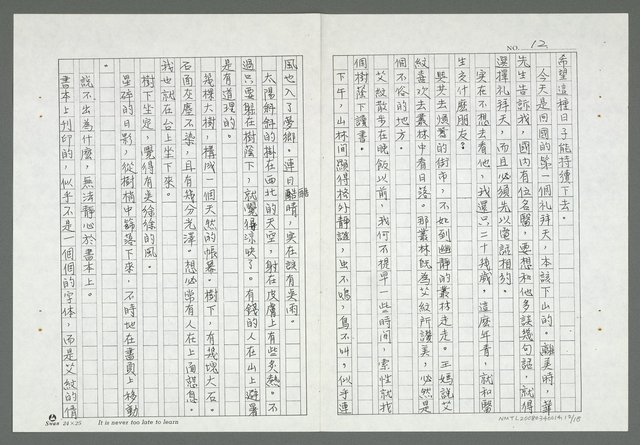 NO. 12
希望這種日子能持續下去。
今天是回國的第一個礼拜天，本該下山的。離美時，華
先生告訴我，國內有位名醫，要想和他多談幾句話，就得
選擇礼拜天，而且必須先以電話相約。
實在不想去看他，我還只二十幾歲，這麼年青，就和醫
生交什麼朋友？
與其去煩囂的街市，不如到幽静的叢林走走。王媽說艾
紋喜欢去叢林中看日落。那叢林既為艾紋所讚美，必然是
個不俗的地方。
艾紋散步在晚飯以前，我何不提早一些時間，索性就找
個樹蔭下讀書。
下午，山林間顯得格外静謐，虫不鳴，鳥不叫，似乎連
風也入了夢鄉。連日酷晴，实在該有美雨。
太陽斜斜的掛在西北的天空，射在皮膚上有些炙熱。不
過只要躲在樹蔭下，就覺得涼快了。有錢的人在山上避暑
是有道理的。
幾棵大樹，構成一個天然的帳幕。樹下，有幾塊大石。
石面灰塵不染，且有幾分光澤。想必常有人在上面憩息。
我也就在石上坐下來。
樹下坐定，覺得有美徐徐的風。
星碎的日影，從樹梢中篩落下來，不時地在書頁上移動
。
說不出為什麼，無法静心於書本上。
書本上刊印的，似乎不是一個個的字体，而是艾紋的倩
Swan 24×25 It is never too late to learn
NMTL20080340014,12/18